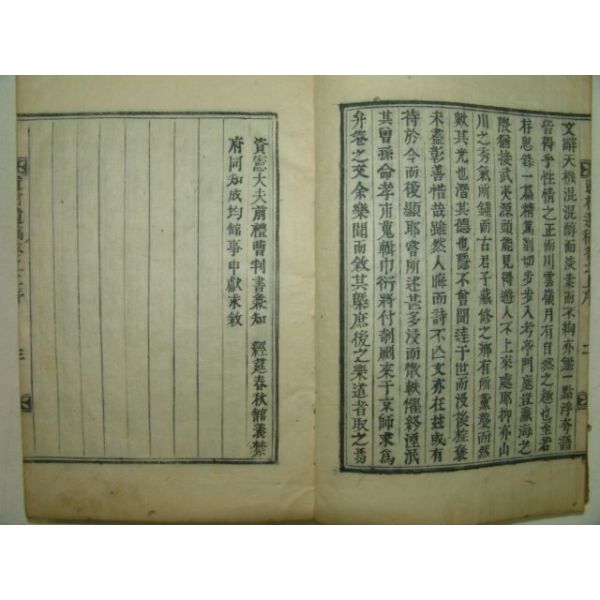 文辭天機混混醇而淡素而不絢亦無一點浮夸語
皆得乎性情之正而川雲嶺月有自然之趣也至若
存思錄一篇精篤剴切步步入考亭門庭從瀛海之
隈猶接武夷源頭能見得遊人不上來處耶抑亦山
川之秀氣所鍾而古君子藏修之鄕有所薰襲而然
歟其光也潛其德也隱不曾聞達于世而沒後旌褒
未盡彰善惜哉雖然人晦而詩不亡文亦在玆或有
待於今而後顯耶嘗所述甚多浸而散軼懼終湮泯
其曾孫命孝甫蒐輯巾衍將付剞劂來于京師求爲
弁卷之文余樂聞而敘其槩庶後之樂道者取之焉
資憲大夫前禮曹判書兼知 經筵春秋館義禁
府同知成均館事申獻求敘